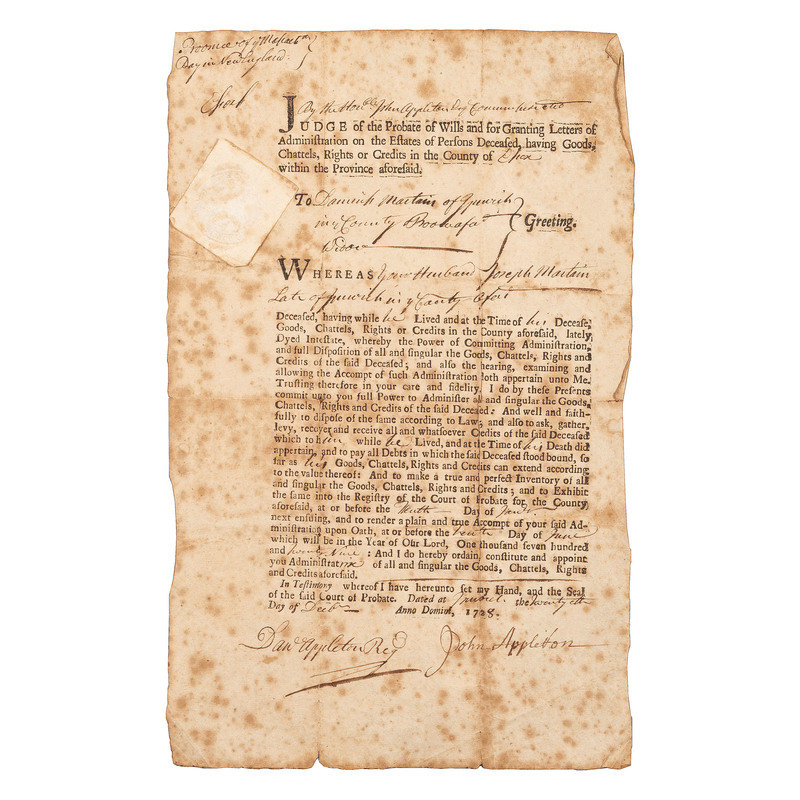 Province of ye Massachtts
Bay in New England.
Essex ss
By the Honble John Appleton Esq Commissionated
JUDGE of the Probate of Wills and for Granting Letters of
Administration on the Estates of Persons Deceased, having Goods,
Chattels, Rights or Credits in the County of Essex
within the Province aforesaid.
To Martain of Ipswich
in ye County
Greeting.
WHEREAS your Husband Joseph Martain
Late of Ipswich in ye County
Deceased, having while he Lived and at the Time of his Decease,
Goods, Chattels, Rights or Credits in the County aforesaid, lately
Dyed Intestate, whereby the Power of Committing Administration,
and full Disposition of all and singular the Goods, Chattels, Rights and
Credits of the said Deceased; and also the hearing, examining and
allowing the Accompt of such Administration doth appertain unto Me.
Trusting therefore in your care and fidelity, I do by these Presents
commit unto you full Power to Administer all and singular the Goods,
Chattels, Rights and Credits of the said Deceased: And well and faith-
fully to dispose of the same according to Law; and also to ask, gather,
levy, recover and receive all and whatsoever Credits of the said Deceased
which to him while he Lived, and at the Time of his Death did
appertain, and to pay all Debts in which the said Deceased stood bound, so
far as his Goods, Chattels, Rights and Credits can extend according
to the value thereof: And to make a true and perfect Inventory of all
and singular the Goods, Chattels, Rights and Credits; and to Exhibit
the same into the Registry of the Court of Probate for the County
aforesaid, at or before the Day of
next ensuing, and to render a plain and true Accompt of your said Ad-
ministration upon Oath, at or before the Day of June
which will be in the Year of Our Lord, One thousand seven hundred
and twenty Nine: And I do hereby ordain, constitute and appoint
you Administratrix of all and singular the Goods, Chattels, Rights
and Credits aforesaid.
In Testimony whereof I have hereunto set my Hand, and the Seal
of the said Court of Probate. Dated at the
Day of Decbr Anno Domini, 1728.
Danl Appleton Regr John Appleton